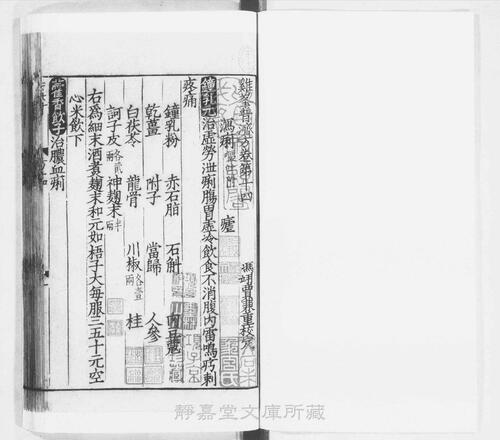 雞峯普濟方卷第十四
馮翊曾兼重校定
瀉痢 瘧
鍾乳元治虛勞泄痢腸胃虛冷飲食不消腹內雷鳴疞刺
疼痛
鍾乳粉 赤石脂 石斛
乾薑 附子 當歸 人參
白茯苓 龍骨 川椒各壹兩 桂
訶子皮各貳兩 神麴末
右爲細末酒煮麴末和元如梧子大每服三五十元空
心米飲下
藿香飲子治膿血痢
靜嘉堂文庫所藏